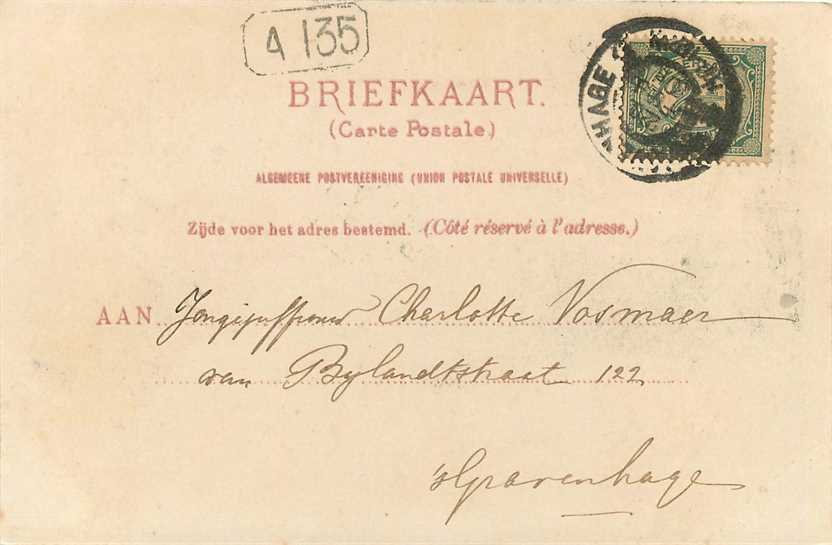 A 135
BRIEFKAART.
(Carte Postale.)
ALGEMEENE POSTVEREENIGING (UNION POSTALE UNIVERSELLE)
Zijde voor het adres bestemd. (Côté réservé à l'adresse.)
AAN Jongejuffrouw Charlotte Vosmaer
van Bylandtstraat 122
's Gravenhage